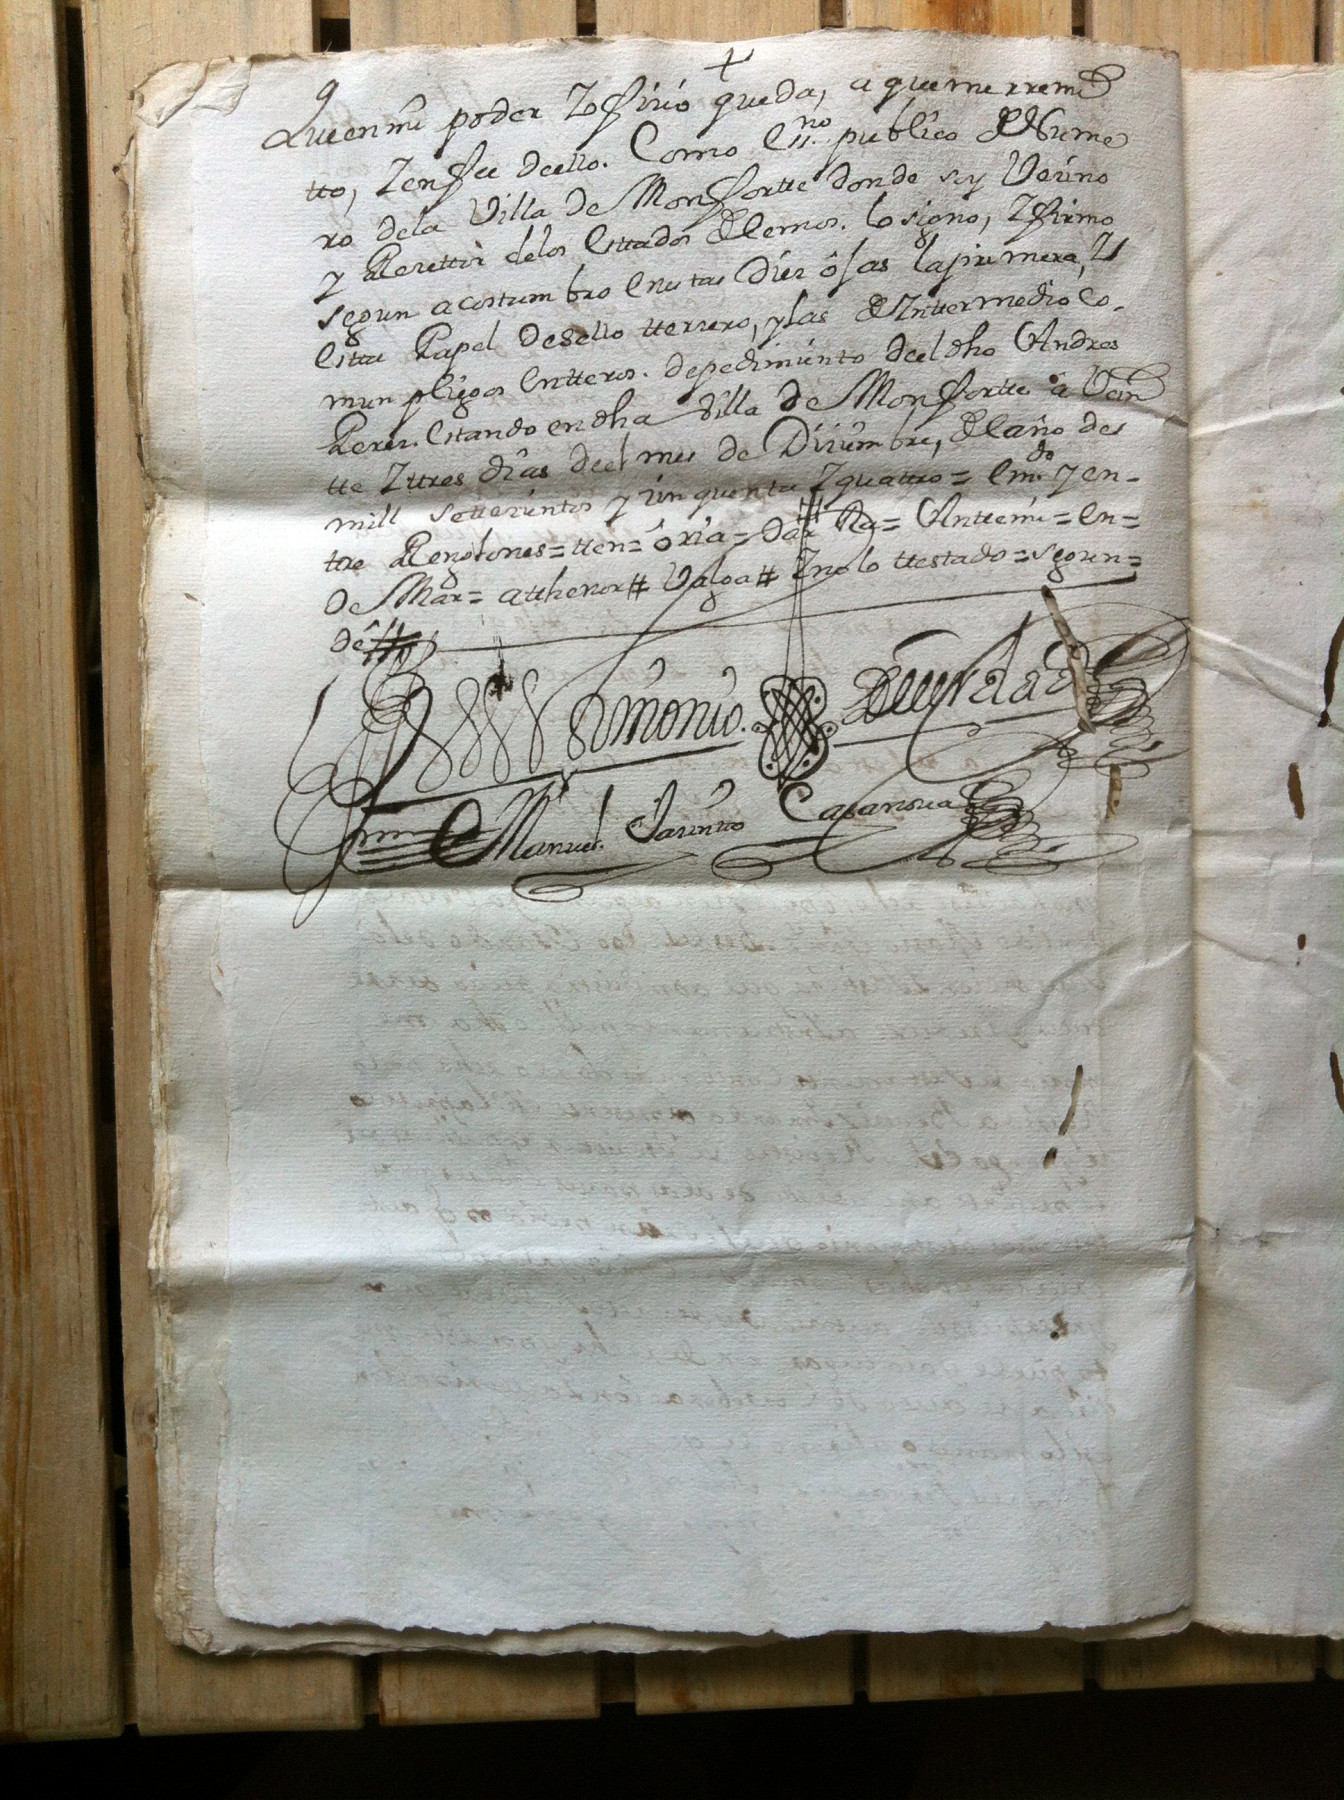 +
Que en mi poder Y ofiçio queda, a que me rremi
tto, Y en fee deello. Como Ess.no publico de Nume
ro dela Villa de Monfortte donde soy Veçino
y Rezettor delos Esttados de Lemos. lo signo, Y firmo
segun acostumbro En estas Diez ôjas la primera, Y
Estta Papel De sello tterzero, y las de Yntermedio Co-
mun pliegos Entteros. de pedimiento deel dho Andres
Perez. Estando en dha Villa de Monfortte â Vein
tte Y ttres dîas deel mes de Diziembre, de El año de
mill settezientos y zinquenta Y quattro = Em.do Y en-
ttre Renglones = tten = ôria = Dar
De Mar = atthenor # Valga # Y no lo ttestado = segun =
dê
En ttestimonio. De Verdad
Manuel Jazintto Casanova